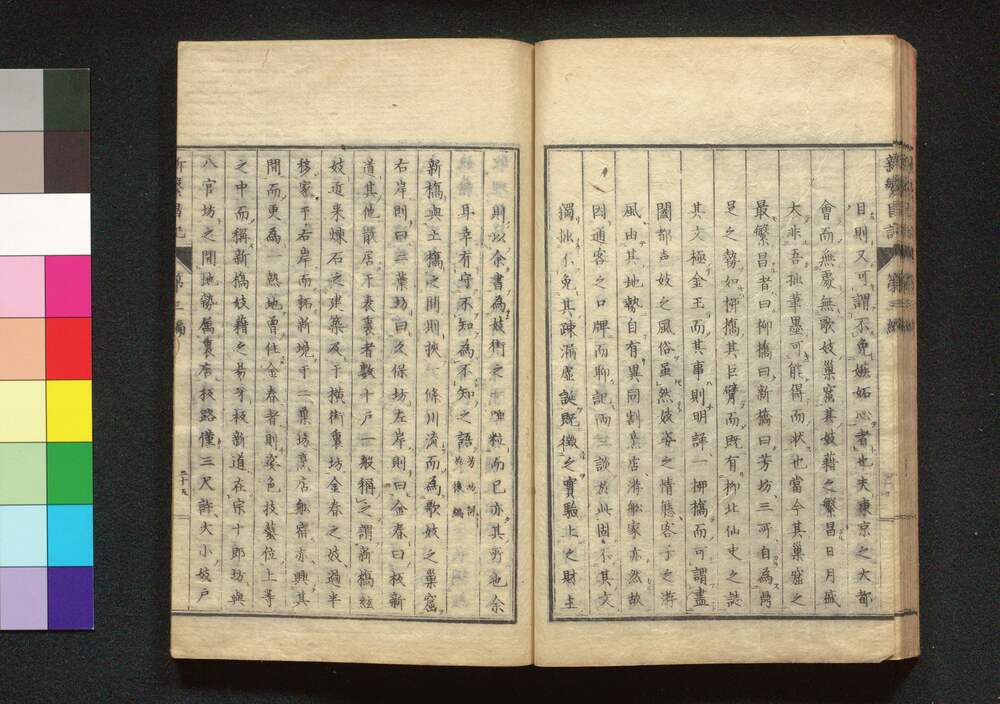 日則又可謂不免嫉妬心者也夫東京之大都
會而無處無歌妓巢窟其妓籍之繁昌日月盛
大非吾拙筆墨可能得而狀也當今其巢窟之
最繁昌者曰柳橋曰新橋曰芳坊三所自為鼎
足之勢如柳橋其巨臂而既有柳北仙史之誌
其文極金玉而其事則明評一柳橋而可謂盡
闔都声妓之風俗虽然妓客之情態客子之游
風由其地勢自有異同割烹店游船家亦然故
因通客之口牌而聊記両三談於此固不其文
獨拙不免其疎漏虛誕既徴之實驗上之財主
則以余書為妓街之唾粒而已亦其所也余
耳幸有守不知為不知之語芳坊詞於後編
新橋與土橋之間則挾一條川流而為歌妓之巢窟
右岸則曰三葉坊曰久保坊左岸則曰金春曰板新
道其他散居于表裏者數十戶一般稱之謂新橋絃
妓近来煉石之建築及于橫街裏坊金春之妓過半
移家于右岸而拓新境于二葉坊烹店船宿亦與其
間而更為一熱地曽住金春者則姿色技藝位上等
之中而稱新橋妓籍之易牙板新道在宗十郎坊與
八官坊之間地勢属裏店板路僅三尺許大小妓戶
新繁昌記
第三編
三十五